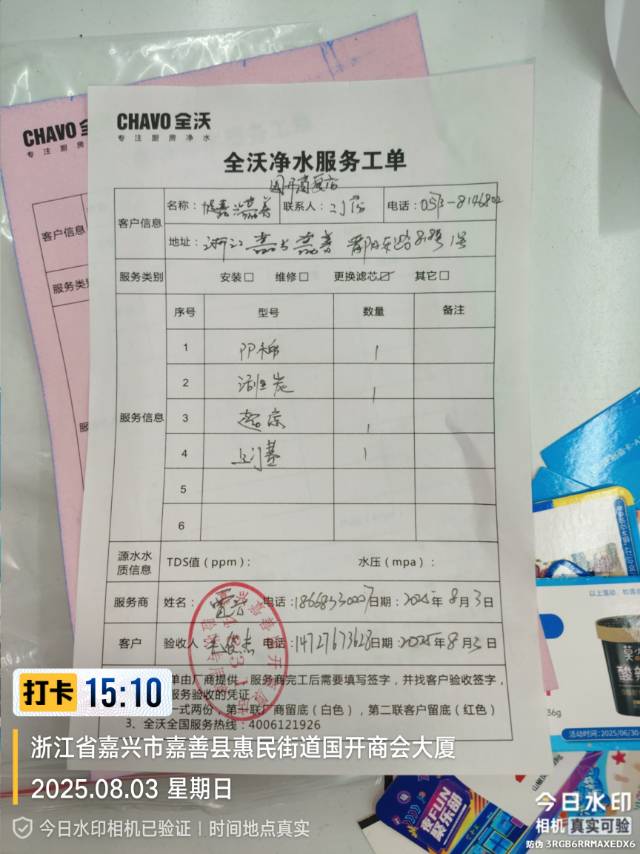 CHAVO 全沃
专 注 厨 房 净 水
客户信息
服务类别
CHAVO 全沃
专 注 厨 房 净 水
全沃净水服务工单
客户信息
名称: 嘉善 联系人: 电话:
地址: 浙江 嘉兴 嘉善
服务类别 安装□ 维修□ 更换滤芯☑ 其它□
服务信息
序号 型号 数量 备注
1 PP棉 1
2 活性炭 1
3 超滤 1
4 上门费 1
5
6
源水水质信息 TDS值(ppm): 水压(mpa):
服务商 姓名: 电话:18668330007 日期: 2025年8月3日
客户 验收人 电话:14727673628 日期: 2025年8月3日
单由厂商提供,服务商完工后需要填写签字,并找客户验收签字,
服务验收的凭证。
一式两份,第一联厂商留底(白色),第二联客户留底(红色)
3、全沃全国服务热线:4006121926
以上活动,
36g
活动时间:2025/06/30
酸
夜FUN
俱乐部
打卡 15:10
浙江省嘉兴市嘉善县惠民街道国开商会大厦
2025.08.03 星期日
今日水印相机已验证 | 时间地点真实
今日水印
相机 真实可验
防伪 3RGB6RRMAXEDX6